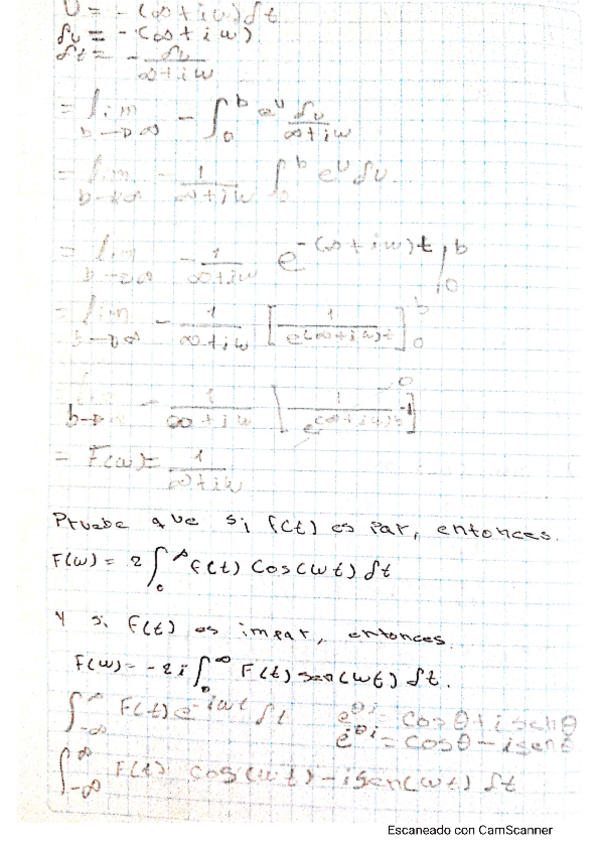 U = - (∞ + iω) δt
δu = - (∞ + iω)
δt = - δu / (∞ + iω)
= lim b→∞ - ∫₀ᵇ eᵁ δu / (∞ + iω)
= lim b→∞ - 1/(∞ + iω) ∫₀ᵇ eᵁ δu
= lim b→∞ - 1/(∞ + iω) e^-(∞ + iω)t |₀ᵇ
= lim b→∞ - 1/(∞ + iω) [1/e^(∞ + iω)t]₀ᵇ
b→∞ - 1/(∞ + iω) [1/e^(∞ + iω)b - 1] 0
= F(ω) = 1/(∞ + iω)
Prueba que si f(t) es Par, entonces.
F(ω) = 2 ∫₀^∞ f(t) Cos(ωt) δt
Y si F(t) es impar, entonces.
F(ω) = -2i ∫₀^∞ F(t) sen(ωt) δt.
∫₋∞^∞ F(t) e^-iωt δt e^θi = cosθ + i senθ
e^θi = cosθ - i senθ
∫₋∞^∞ F(t) cos(ωt) - i sen(ωt) δt
Escaneado con CamScanner